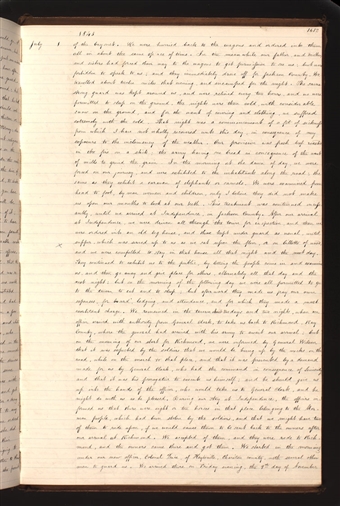 1641
July 1 of the bayonet. We were hurried back to the wagons and ordered into them
all in about the same space of time. In the meanwhile our father and mother
and sisters had forced their way to the wagons to get permission to see us, but were
forbidden to speak to us; and they immediately drove off for Jackson County. We
travelled about twelve miles that evening, and encamped for the night. The same
strong guard was kept around us, and were relieved every two hours, and we were
permitted to sleep on the ground; the nights were then cold, with considerable
snow on the ground, and for the want of covering and clothing, we suffered
extremely with the cold. That night was a commencement of a fit of sickness
from which I have not wholly recovered unto this day, in consequence of my
exposure to the inclemency of the weather. Our provision was fresh beef roasted
in the fire on a stick; the army having no bread in consequence of the want
of mills to grind the grain. In the morning at the dawn of day, we were
forced on our journey, and were exhibited to the inhabitants along the road; the
same as they exhibit a caravan of elephants or camels. We were examined from
head to foot, by men, women and children, only I believe they did not make
us open our mouths to look at our teeth. This treatment was continued inces-
santly, until we arrived at Independence, in Jackson County. After our arrival
at Independence, we were driven all through the town for inspection, and then we
were ordered into an old log house, and there kept under guard as usual, until
supper, which was served up to us as we sat upon the floor, or on billets of wood,
and we were compelled to stay in that house all that night and the next day.
They continued to exhibit us to the public, by letting the people come in and examine
us, and then go away and give place for others, alternately all that day and the
next night; but in the morning of the following day, we were all permitted to go
to the tavern to eat and to sleep; but afterward they made us pay our own
expenses, for board, lodging, and attendance, and for which they made a most
exorbitant charge. We remained in the tavern about two days and two nights, when an
officer arrived with authority from General Clark, to take us back to Richmond, Ray
County, where the general had arrived with his army to await our arrival; but
on the morning of our start for Richmond, we were informed, by General Wilson,
that it was expected by the soldiers that we would be hung up by the necks on the
road, while on the march to that place, and that it was prevented by a demand
made for us by General Clark, who had the command in consequence of seniority
and that it was his prerogative to execute us himself; and he should give us
up into the hands of the officer, who would take us to General Clark, and he
might do with us as he pleased. During our stay at Independence, the officers in-
formed us that there were eight or ten horses in that place belonging to the Mor-
mon people, which had been stolen by the soldiers, and that we might have two
of them to ride upon, if we would cause them to be sent back to the owners after
our arrival at Richmond. We accepted of them, and they were rode to Rich-
mond, and the owners came there and got them. We started in the morning
under our new officer, Colonel Price, of Keytsville, Chariton county, with several other
men to guard us. We arrived there on Friday evening, the 9th day of November